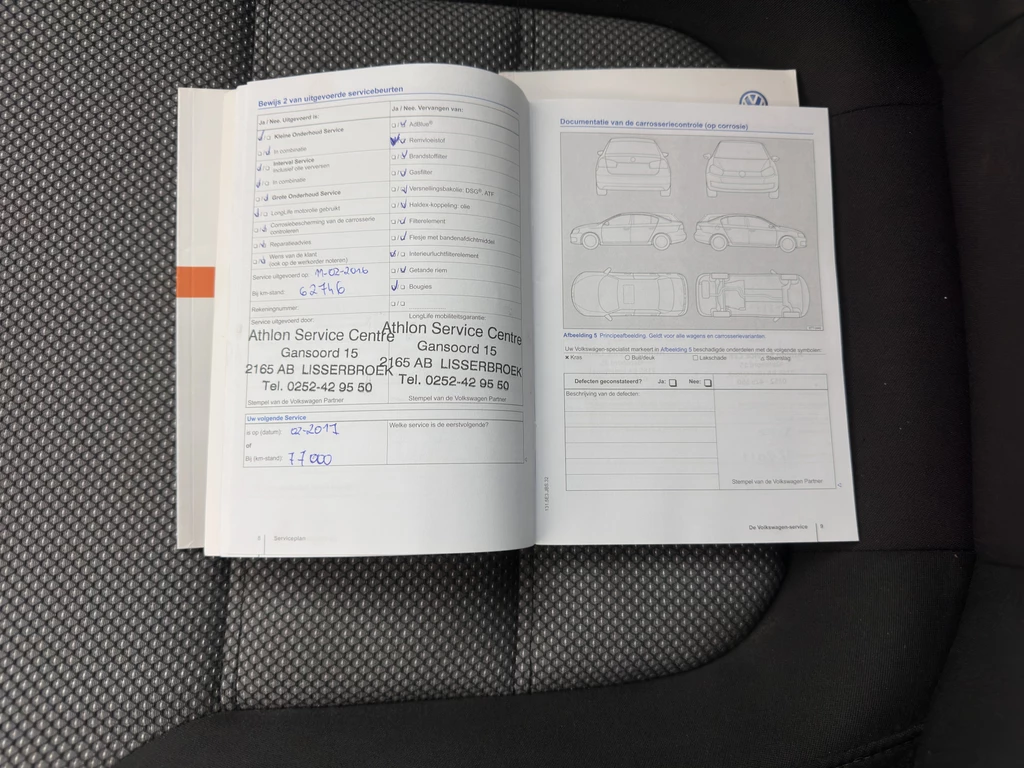 Bewijs 2 van uitgevoerde servicebeurten
Ja / Nee. Uitgevoerd is:
Kleine Onderhoud Service
In combinatie
Interval Service
inclusief olie verversen
In combinatie
Grote Onderhoud Service
LongLife motorolie gebruikt
Corrosiebescherming van de carrosserie
controleren
Reparatieadvies
Wens van de klant
(ook op de werkorder noteren)
Service uitgevoerd op: 11-02-2016
Bij km-stand: 62746
Rekeningnummer:
Service uitgevoerd door:
Athlon Service Centre
Gansoord 15
2165 AB LISSERBROEK
Tel. 0252-42 95 50
Stempel van de Volkswagen Partner
Ja / Nee. Vervangen van:
AdBlue®
Remvloeistof
Brandstoffilter
Gasfilter
Versnellingsbakolie: DSG®, ATF
Haldex-koppeling: olie
Filterelement
Flesje met bandenafdichtmiddel
Interieurluchtfilterelement
Getande riem
Bougies
LongLife mobiliteitsgarantie:
Athlon Service Centre
Gansoord 15
2165 AB LISSERBROEK
Tel. 0252-42 95 50
Stempel van de Volkswagen Partner
Uw volgende Service
is op (datum): 02-2017
of
Bij (km-stand): 77000
Welke service is de eerstvolgende?
8 Serviceplan
Documentatie van de carrosseriecontrole (op corrosie)
Afbeelding 5 Principeafbeelding. Geldt voor alle wagens en carrosserievarianten
Uw Volkswagen-specialist markeert in Afbeelding 5 beschadigde onderdelen met de volgende symbolen:
× Kras O Buil/deuk □ Lakschade Steenslag
Defecten geconstateerd? Ja: □ Nee: □
Beschrijving van de defecten:
Stempel van de Volkswagen Partner
De Volkswagen-service 9